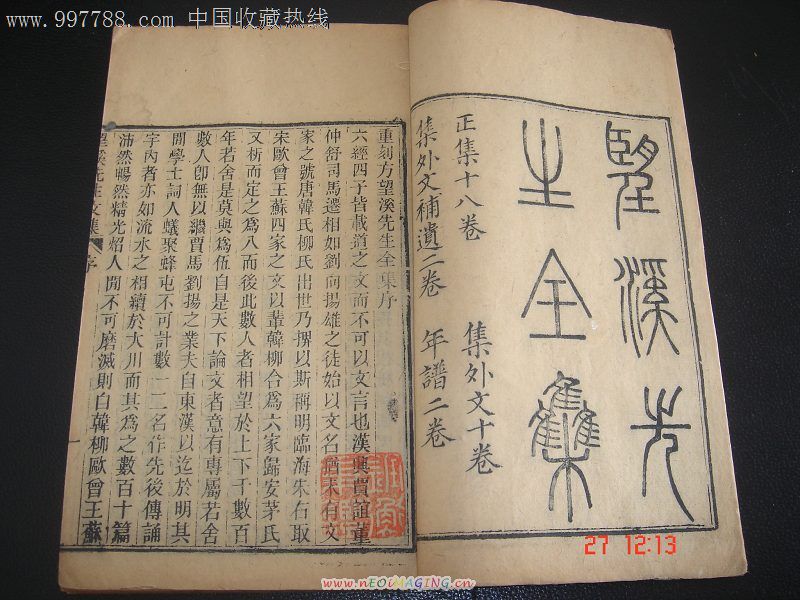 www.997788.com 中国收藏热线
望溪先
生全集
正集十八卷 集外文十卷
集外文補遺二卷 年譜二卷
重刻方望溪先生全集序
六經四子皆載道之文而不可以文言也漢興賈誼董
仲舒司馬遷相如劉向揚雄之徒始以文名猶未有文
家之號唐韓氏柳氏出世乃以斯稱明臨海朱右取
宋歐曾王蘇四家之文以輩韓柳合爲六家歸安茅氏
又析而定之爲八而後此數人者相望於上下千數百
年若舍是莫與爲伍自是天下論文者意有專屬若舍
數人卽無以繼賈馬劉揚之業夫自東漢以迄於明其
間學士詞人蟻聚蜂屯不可計數一二名作先後傳誦
宇內者亦如流水之相續於大川而其爲之數百十篇
沛然暢然精光炤人間不可磨滅則自韓柳歐曾王蘇
望溪先生文集 序 一
27 12:13
www.nEOiMAGiNG.cn